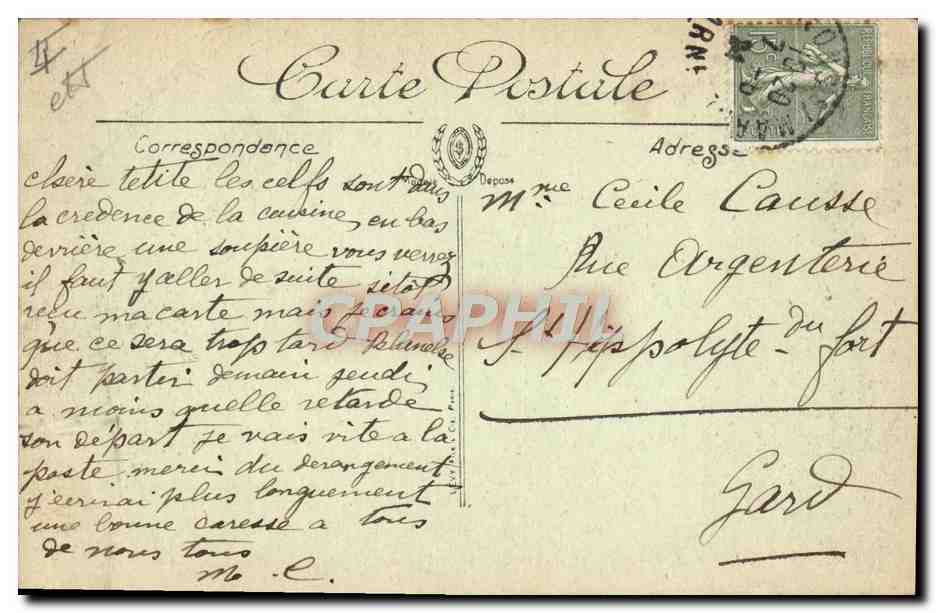 II
et I
Carte Postale
Correspondance
Adresse
Modèle Déposé
chère tetite les celfs sont dans
la credence de la cuisine, en bas
derrière une soupière vous verrez
il faut y aller de suite sitôt
reçu ma carte mais je crains
que ce sera trop tard
doit partir demain jeudi
a moins quelle retarde
son départ je vais vite a la
poste merci du derangement
j'ecrirai plus longuement
une bonne caresse a tous
de nous tous
M. C.
Mme Cecile Causse
Rue Argenterie
St Hippolyte du fort
Gard
REPUBLIQUE FRANÇAISE
15 C
CPAPHIL